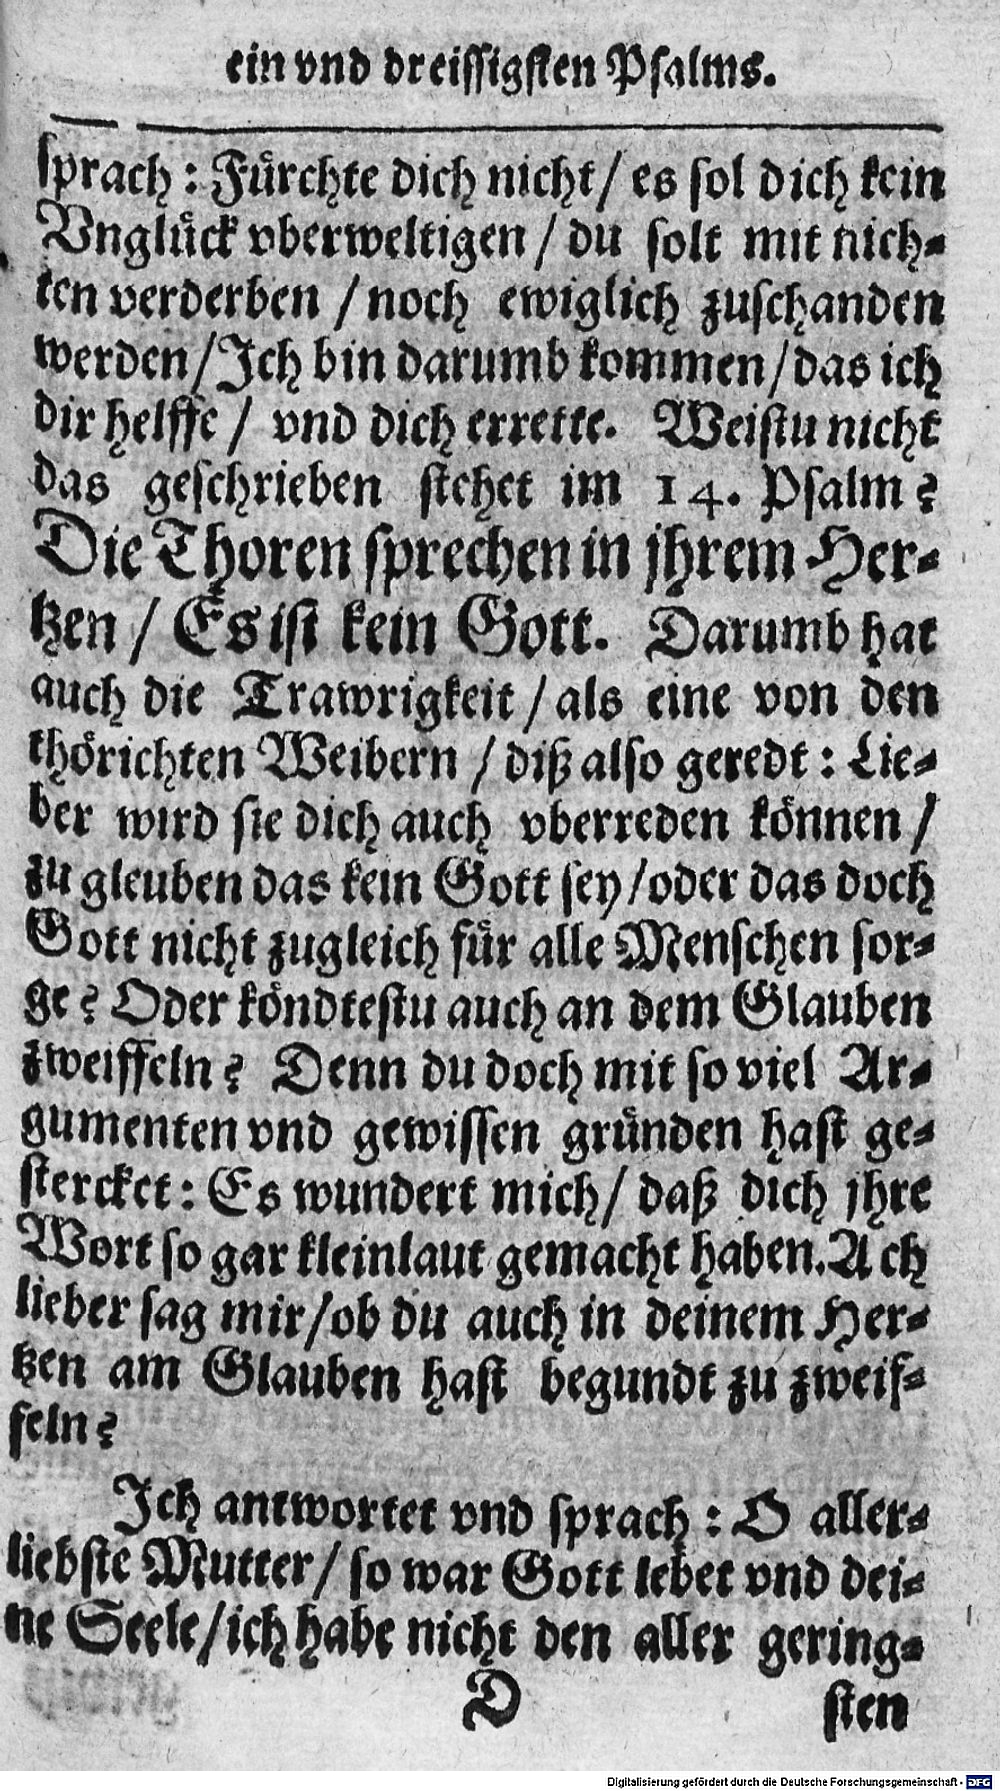 ein vnd dreissigsten Psalms.
sprach: Fürchte dich nicht/ es sol dich kein
Vnglück vberweltigen / du solt mit nich-
ten verderben / noch ewiglich zuschanden
werden/Ich bin darumb kommen/das ich
dir helffe / vnd dich errette. Weistu nicht
das geschrieben stehet im 14. Psalm?
Die Thoren sprechen in jhrem Her-
tzen / Es ist kein Gott. Darumb hat
auch die Trawrigkeit / als eine von den
thörichten Weibern / diß also geredt: Lie-
ber wird sie dich auch vberreden können /
zu gleuben das kein Gott sey/oder das doch
Gott nicht zugleich für alle Menschen sor-
ge? Oder köndtestu auch an dem Glauben
zweiffeln? Denn du doch mit so viel Ar-
gumenten vnd gewissen gründen hast ge-
stercket: Es wundert mich/ daß dich jhre
Wort so gar kleinlaut gemacht haben. Ach
lieber sag mir/ob du auch in deinem Her-
tzen am Glauben hast begundt zu zweif-
feln?
Ich antwortet vnd sprach: O aller-
liebste Mutter/ so war Gott lebet vnd dei-
ne Seele/ich habe nicht den aller gering-
D sten
Digitalisierung gefördert durch die Deutsche Forschungsgemeinschaft - DFG